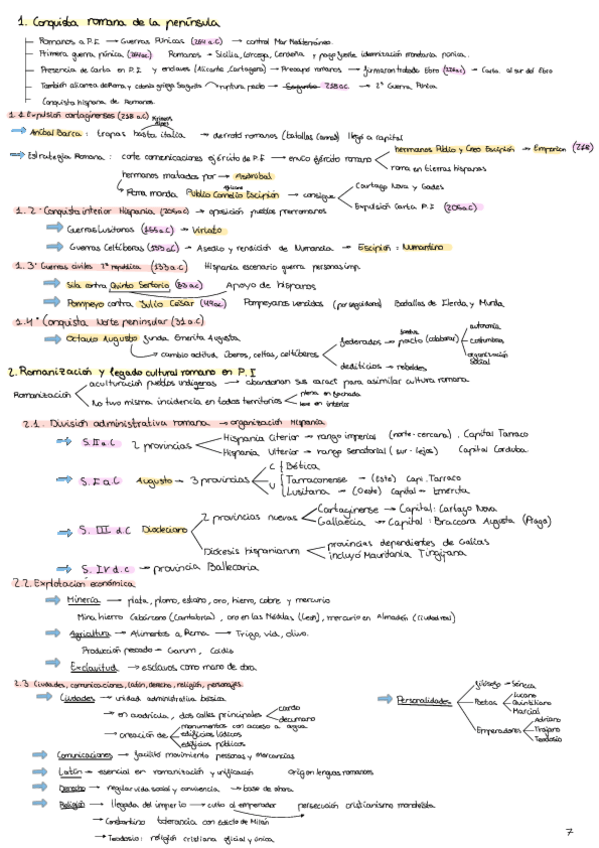 1. Conquista romana de la península
Romanos a P.I → Guerras Púnicas (264 a.C) → control Mar Mediterráneo.
Primera guerra púnica (264a.C) Romanos → Sicilia, Córcega, Cerdeña y pago fuerte idemnización monetaria púnica.
Presencia de Carta en P.I y enclaves (Alicante, Cartagena) → Preocupa romanos → firmaron tratado Ebro (226a.C) → Carta. al sur del Ebro
También alianza de Roma y colonia griega Sagunto → ruptura pacto → 218 a.C → 2ª Guerra Púnica
Conquista hispana de Romanos.
1.1 Expulsión cartaginenses (218 a.C)
Pirineos
Alpes
Aníbal Barca: tropas hasta italia → derrotó romanos (batallas Cannas) llegó a capital
Estrategia Romana: corte comunicaciones ejército de P.I → envío ejército romano
hermanos Publio y Cneo Escipión → Emporion (218)
roma en tierras hispanas
hermanos matados por → Asdrúbal
Roma manda Publio Cornelio Escipión → consigue
Cartago Nova y Gades
Expulsión Carta P.I (206a.C)
1.2º Conquista interior Hispania (206a.C) → oposición pueblos prerromanos
Guerras lusitanas (155 a.C) → Viriato
Guerras Celtíberas (153 a.C) → Asedio y rendición de Numancia → Escipión: Numantino
1.3º Guerras civiles 1ª república (133 a.C) Hispania escenario guerra personas imp.
Sila contra Quinto Sertorio (83 a.C) Apoyo de hispanos
Pompeyo contra Julio César (49a.C) Pompeyanos vencidos (perseguidores) Batallas de Ilerda y Munda
1.4º Conquista Norte peninsular (31 a.C)
Octavio Augusto funda Emerita Augusta
cambio actitud íberos, celtas, celtíberos
federados → pacto (colaborar)
autonomía
costumbres
organización social
dediticios → rebeldes
2. Romanización y legado cultural romano en P.I
Romanización
aculturación pueblos indígenas → abandonan sus caract para asimilar cultura romana.
No tuvo misma incidencia en todos territorios
plena en fachada
leve en interior
2.1. División administrativa romana → organización Hispania
S.II a.C 2 provincias
Hispania Citerior → rango imperios (norte - cercana). Capital Tarraco
Hispania Ulterior → rango senatorial (sur - lejos) Capital Corduba
S.I a.C Augusto → 3 provincias
C Bética
U Tarraconense → (Este) Capi. Tarraco
Lusitana → (Oeste) Capital → Emerita
S. III d.C Diocleciano
2 provincias nuevas
Cartaginense → Capital: Cartago Nova
Gallaecia → Capital: Braccara Augusta (Braga)
Diócesis Hispaniarum
provincias dependientes de Galias
incluyó Mauritania Tingitana
S. IV d.C → provincia Ballecaria
2.2. Explotación económica
Minería → plata, plomo, estaño, oro, hierro, cobre y mercurio
Mina hierro Cabárceno (Cantabria), oro en las Médulas (León), mercurio en Almadén (Ciudad real)
Agricultura → Alimentos a Roma → Trigo, vid, olivo.
Producción pescado → Garum, Cádiz
Esclavitud → esclavos como mano de obra.
2.3 Ciudades, comunicaciones, latín, derecho, religión, personajes.
Ciudades → unidad administrativa básica
en cuadrícula, dos calles principales
cardo
decumano
creación de
monumentos con acceso a agua
edificios lúdicos
edificios públicos
Personalidades
filósofo → Séneca
Poetas
Lucano
Quintiliano
Marcial
Emperadores
Adriano
Trajano
Teodosio
Comunicaciones → facilitó movimiento personas y mercancías
Latín → esencial en romanización y unificación origen lenguas romances
Derecho → regular vida social y convivencia → base de ahora
Religión → llegada del imperio → culto al emperador persecución cristianismo monoteísta.
Constantino tolerancia con edicto de Milán
Teodosio: religión cristiana oficial y única
7